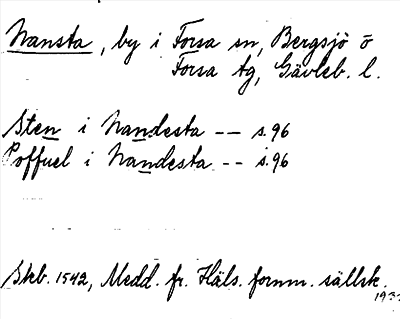 Nansta, by i Forsa sn, Bergsjö o
Forsa tg, Gävleb. l.
Sten i Nandesta -- s. 96
Poffuel i Nandesta -- s. 96
Skb. 1542, Medd. fr. Häls. fornm. sällsk.